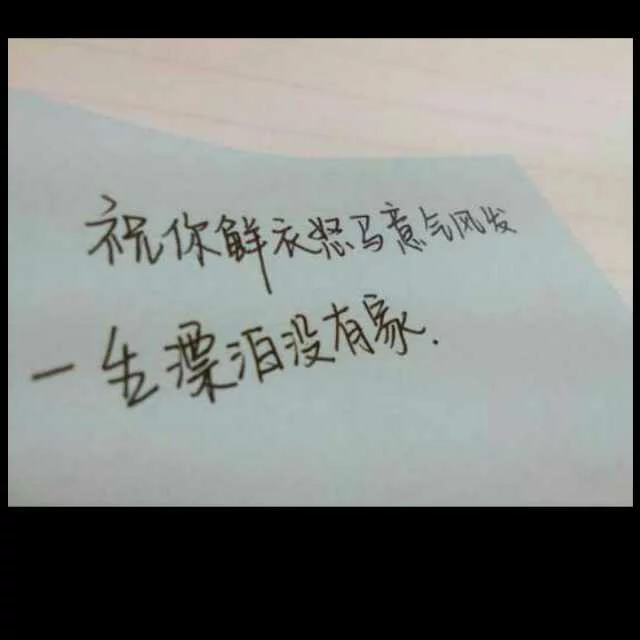 祝你鲜衣怒马意气风发
一生漂泊没有家.